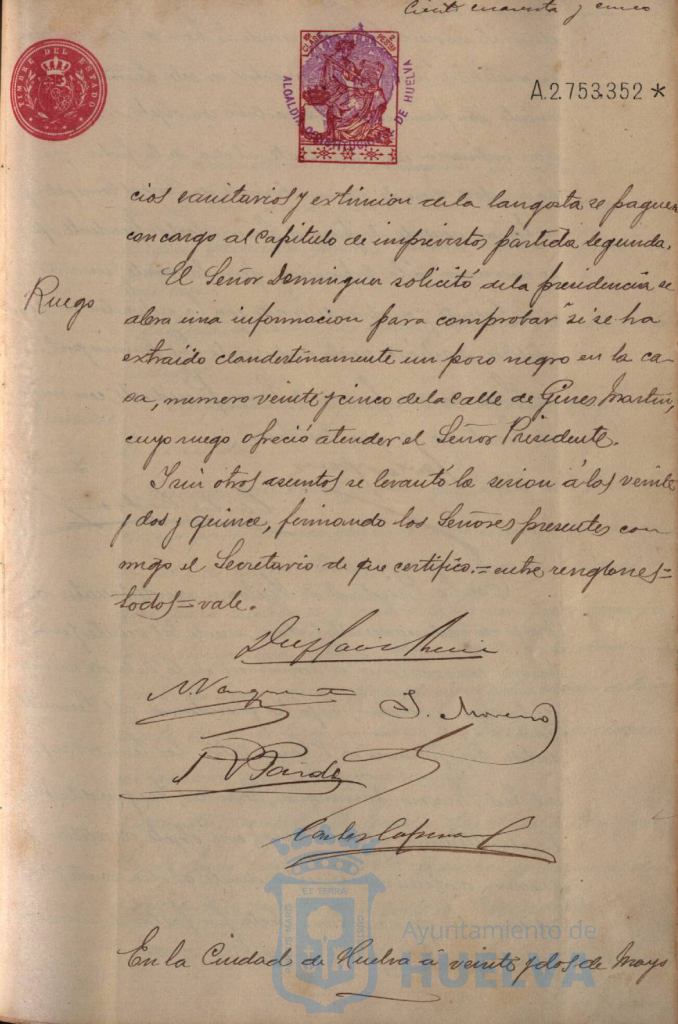 Ciento cuarenta y cinco
TIMBRE DEL ESTADO
8ª CLASE 2 PESETAS
ALCALDIA CONSTITUCIONAL DE HUELVA
A.2.753.352 *
cios sanitarios y extincion de la langosta se paguen
con cargo al capitulo de imprevistos partida segunda.
Ruego
El Señor Dominguez solicitó de la presidencia se
abra una informacion para comprobar si se ha
extraido clandestinamente un pozo negro en la ca-
sa, numero veinte y cinco de la calle de Gines Martin,
cuyo ruego ofreció atender el Señor Presidente.
Y sin otros asuntos se levantó la sesion á las veinte
y dos y quince, firmando los Señores presentes con-
migo el Secretario de que certifico.=entre renglones=
todos=vale.
J. Moreno
En la Ciudad de Huelva á veinte y dos de Mayo
Ayuntamiento de
HUELVA